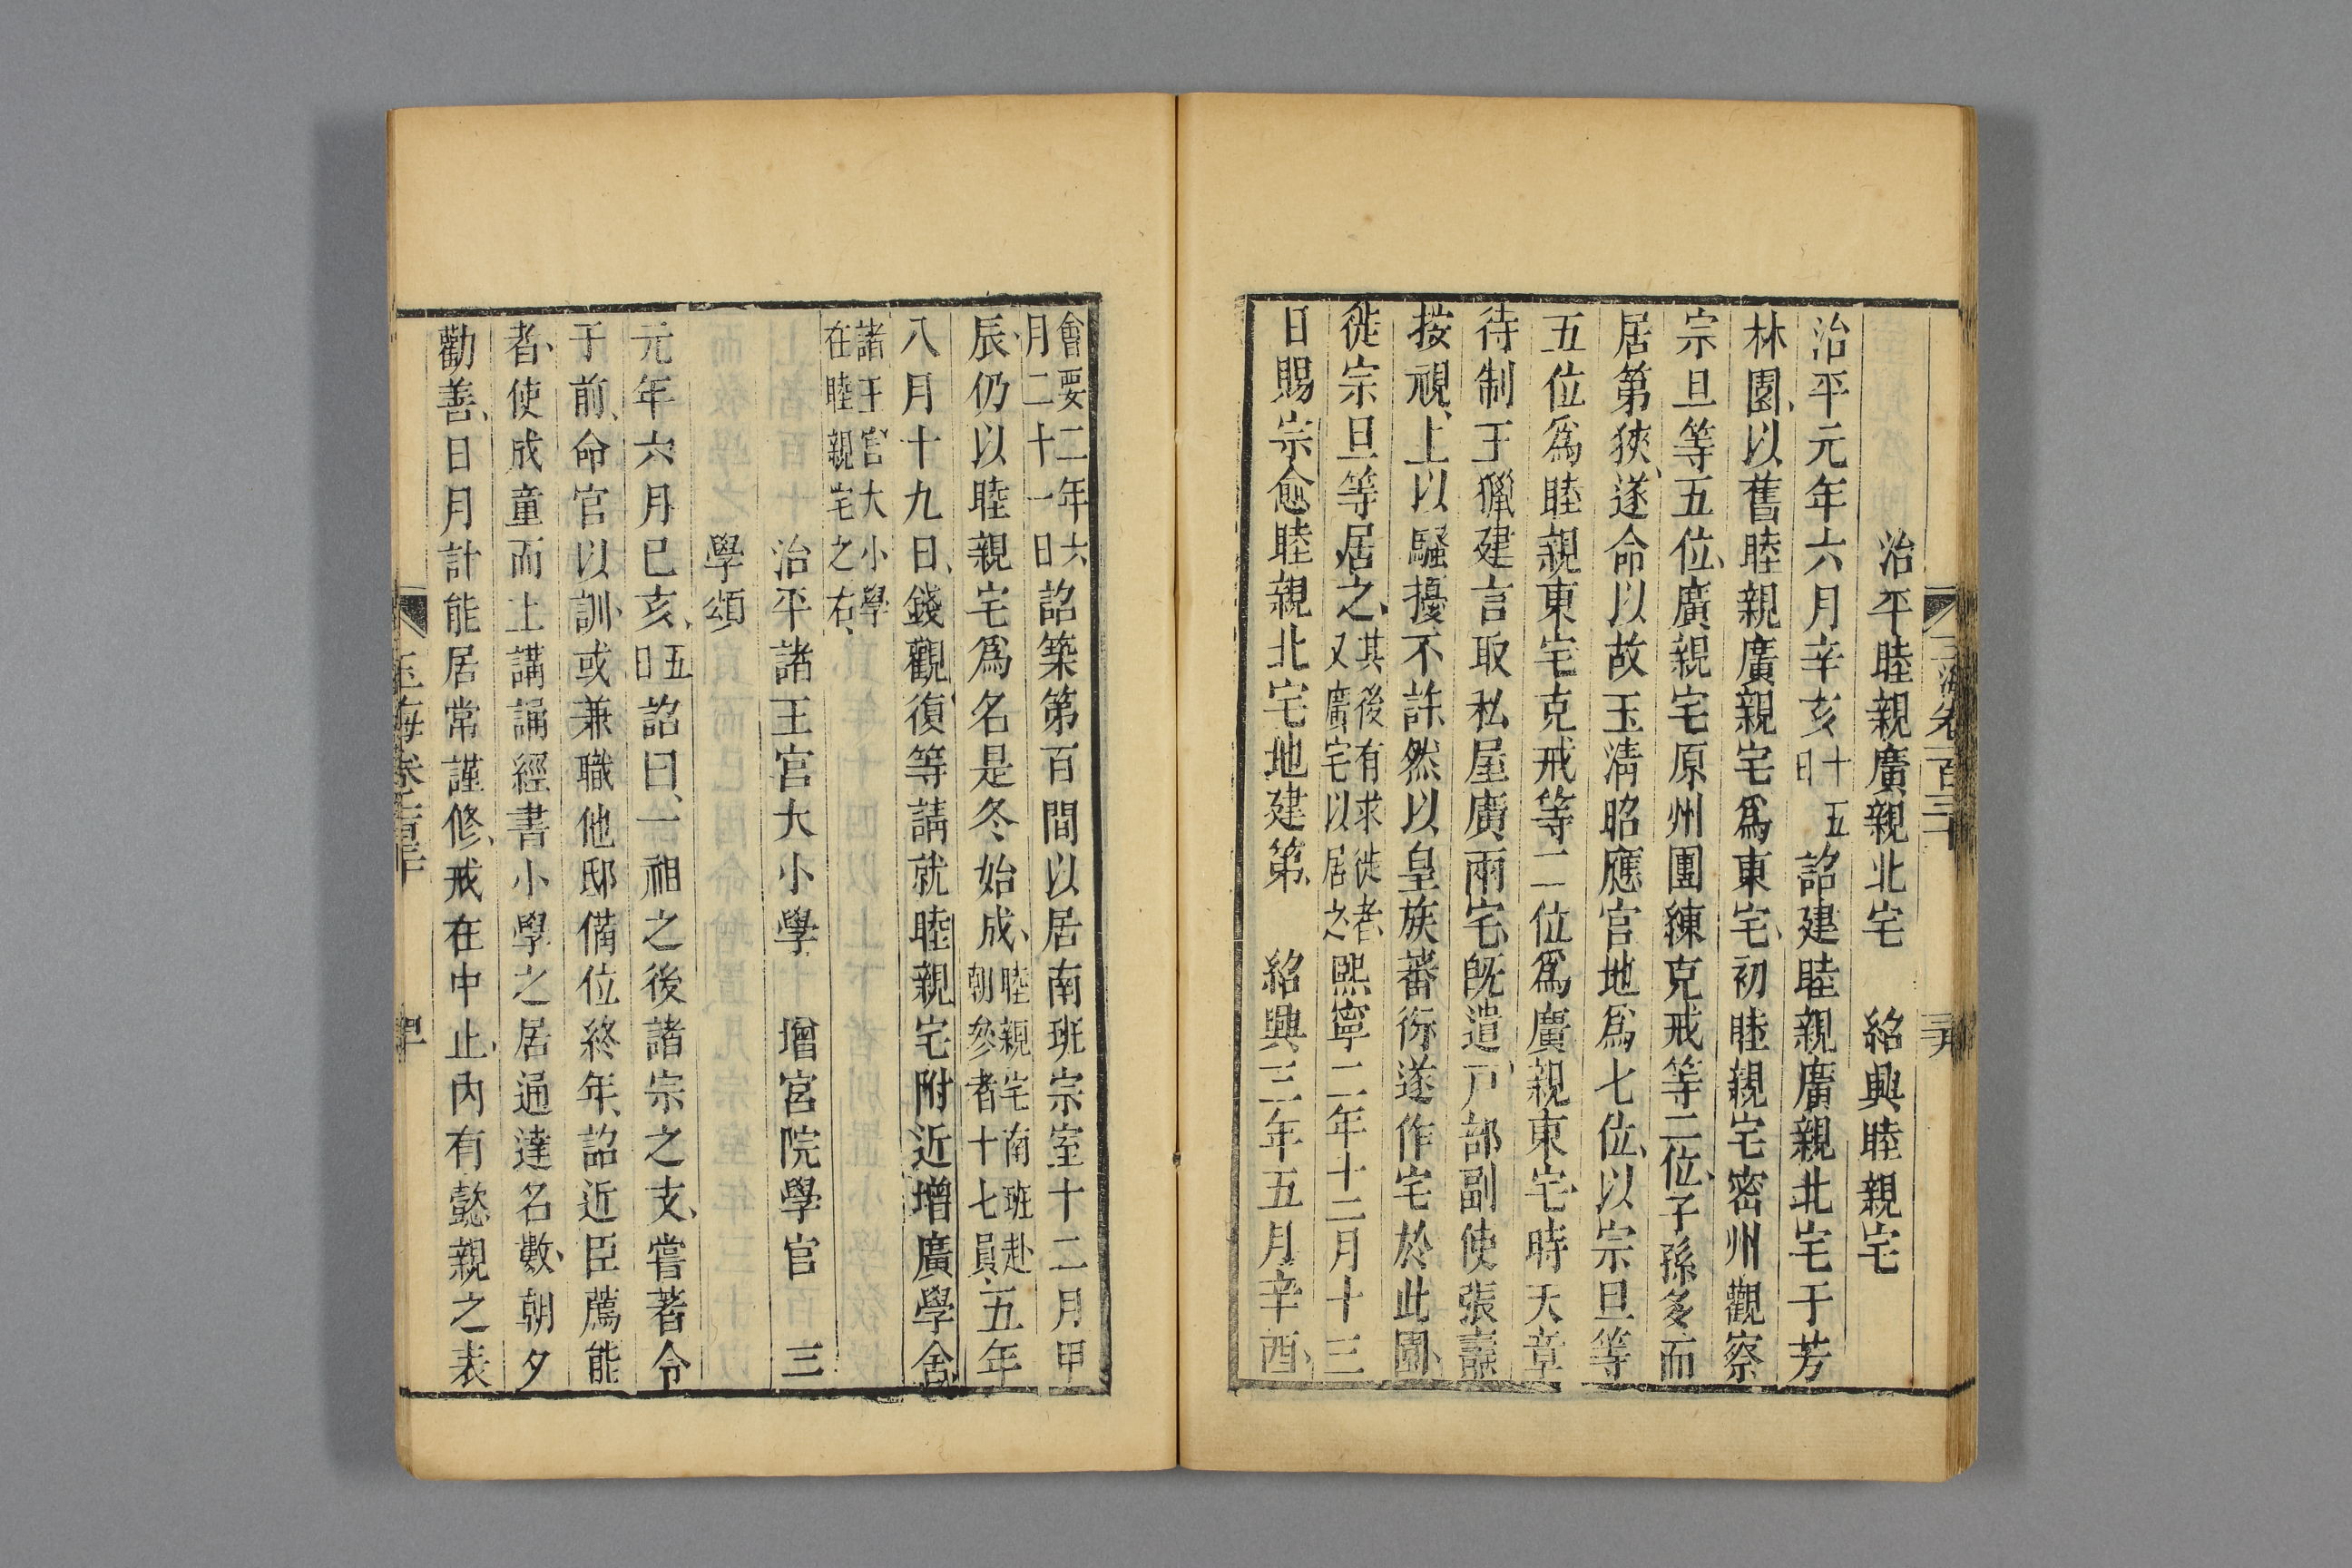 治平睦親廣親北宅　紹興睦親宅
治平元年六月辛亥十五日詔建睦親廣親北宅于芳
林園、以舊睦親廣親宅爲東宅、初睦親宅密州觀察
宗旦等五位、廣親宅原州團練克戒等二位、子孫多而
居第狹、遂命以故玉淸昭應宮地爲七位、以宗旦等
五位爲睦親東宅克戒等二位爲廣親東宅、時天章
待制王獵建言取私屋廣兩宅、旣遣戸部副使張燾
按視、上以騷擾不許然以皇族蕃衍遂作宅於此園、
徙宗旦等居之、其後有求徙者、又廣宅以居之熙寧二年十二月十三
日賜宗愈睦親北宅地建第、　紹興三年五月辛酉、
會要二年六月二十一日詔築第百間以居南班宗室十二月甲
辰、仍以睦親宅爲名是冬始成、睦親宅南班赴朝參者十七員、五年
八月十九日、錢觀復等請就睦親宅附近增廣學舍
諸王宮大小學在睦親宅之右、
治平諸王宮大小學　增宮院學官　三
學頌
元年六月己亥、五日詔曰、一祖之後諸宗之支、嘗著令
于前、命官以訓、或兼職他邸備位終年、詔近臣薦能
者、使成童而上講誦經書小學之居通達名數、朝夕
勸善、日月計能居常謹修、戒在中止、內有懿親之表
玉海卷一百三十